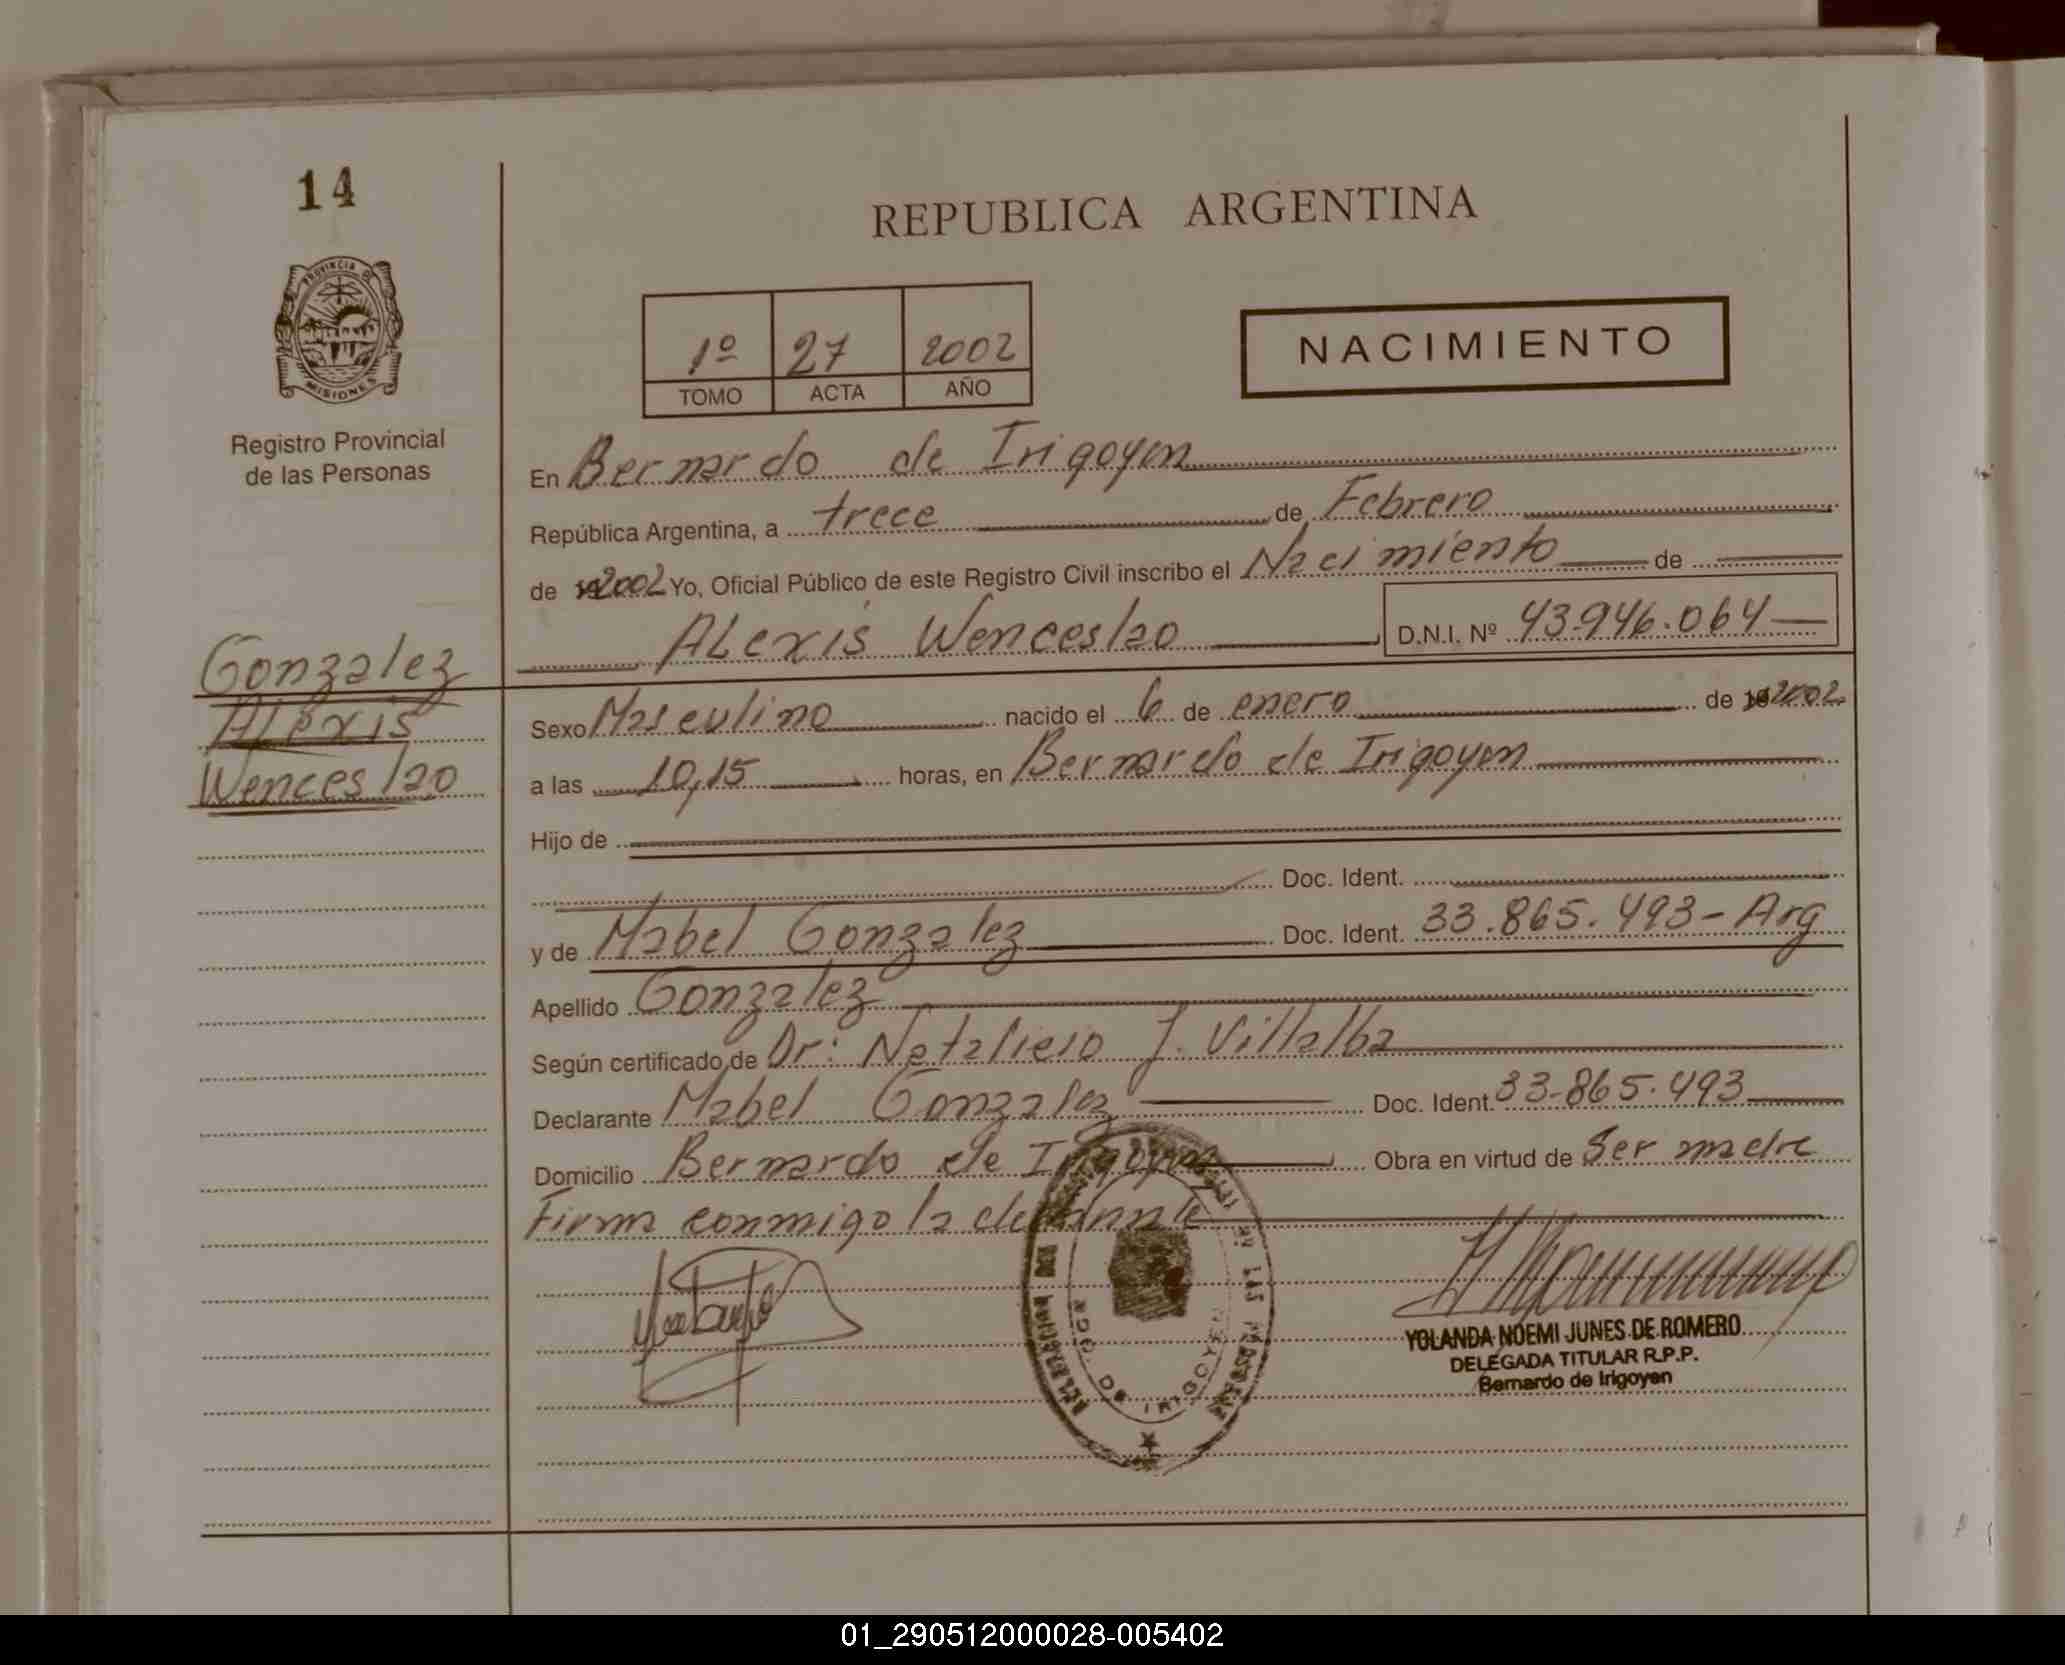 14
REPUBLICA ARGENTINA
PROVINCIA DE
MISIONES
1º 27 2002
TOMO ACTA AÑO
NACIMIENTO
Registro Provincial
de las Personas
En Bernardo de Irigoyen
República Argentina, a trece de Febrero
de 2002 Yo, Oficial Público de este Registro Civil inscribo el Nacimiento de
Alexis Wenceslao D.N.I. Nº 43.946.064
Gonzalez
Alexis
Wenceslao
Sexo Masculino nacido el 6 de enero de 2002
a las 10,15 horas, en Bernardo de Irigoyen
Hijo de
Doc. Ident.
y de Mabel Gonzalez Doc. Ident. 33.865.493 - Arg
Apellido Gonzalez
Según certificado de Dr: Natalicio J. Villalba
Declarante Mabel Gonzalez Doc. Ident. 33.865.493
Domicilio Bernardo de Irigoyen Obra en virtud de Ser madre
Firma conmigo la
DE LAS PERSONAS
BDO. DE IRIGOYEN
YOLANDA NOEMI JUNES DE ROMERO
DELEGADA TITULAR R.P.P.
Bernardo de Irigoyen
01_290512000028-005402